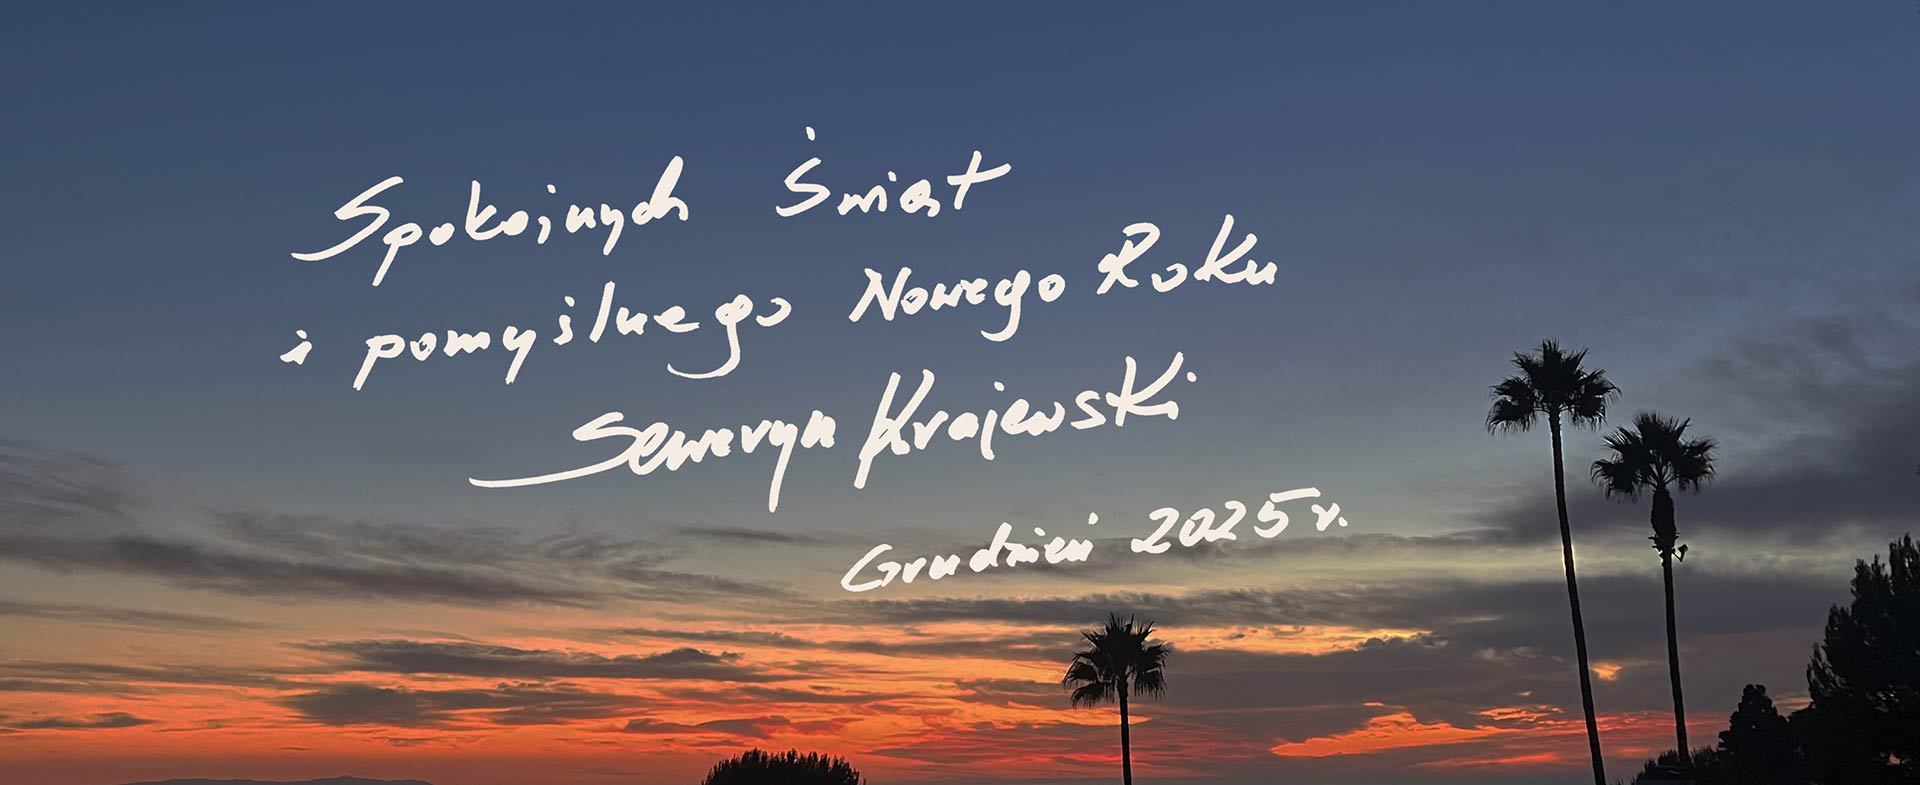 Spokojnych Świąt
i pomyślnego Nowego Roku
Seweryn Krajewski
Grudzień 2025 r.